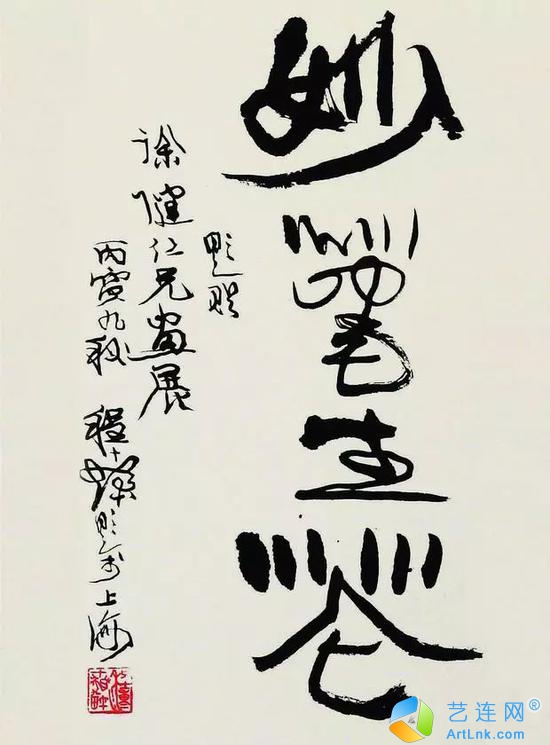 妙笔生花
题
徐健仁兄畫展
丙寅九秋 程十髮题於上海
艺连网®
ArtLnk.com